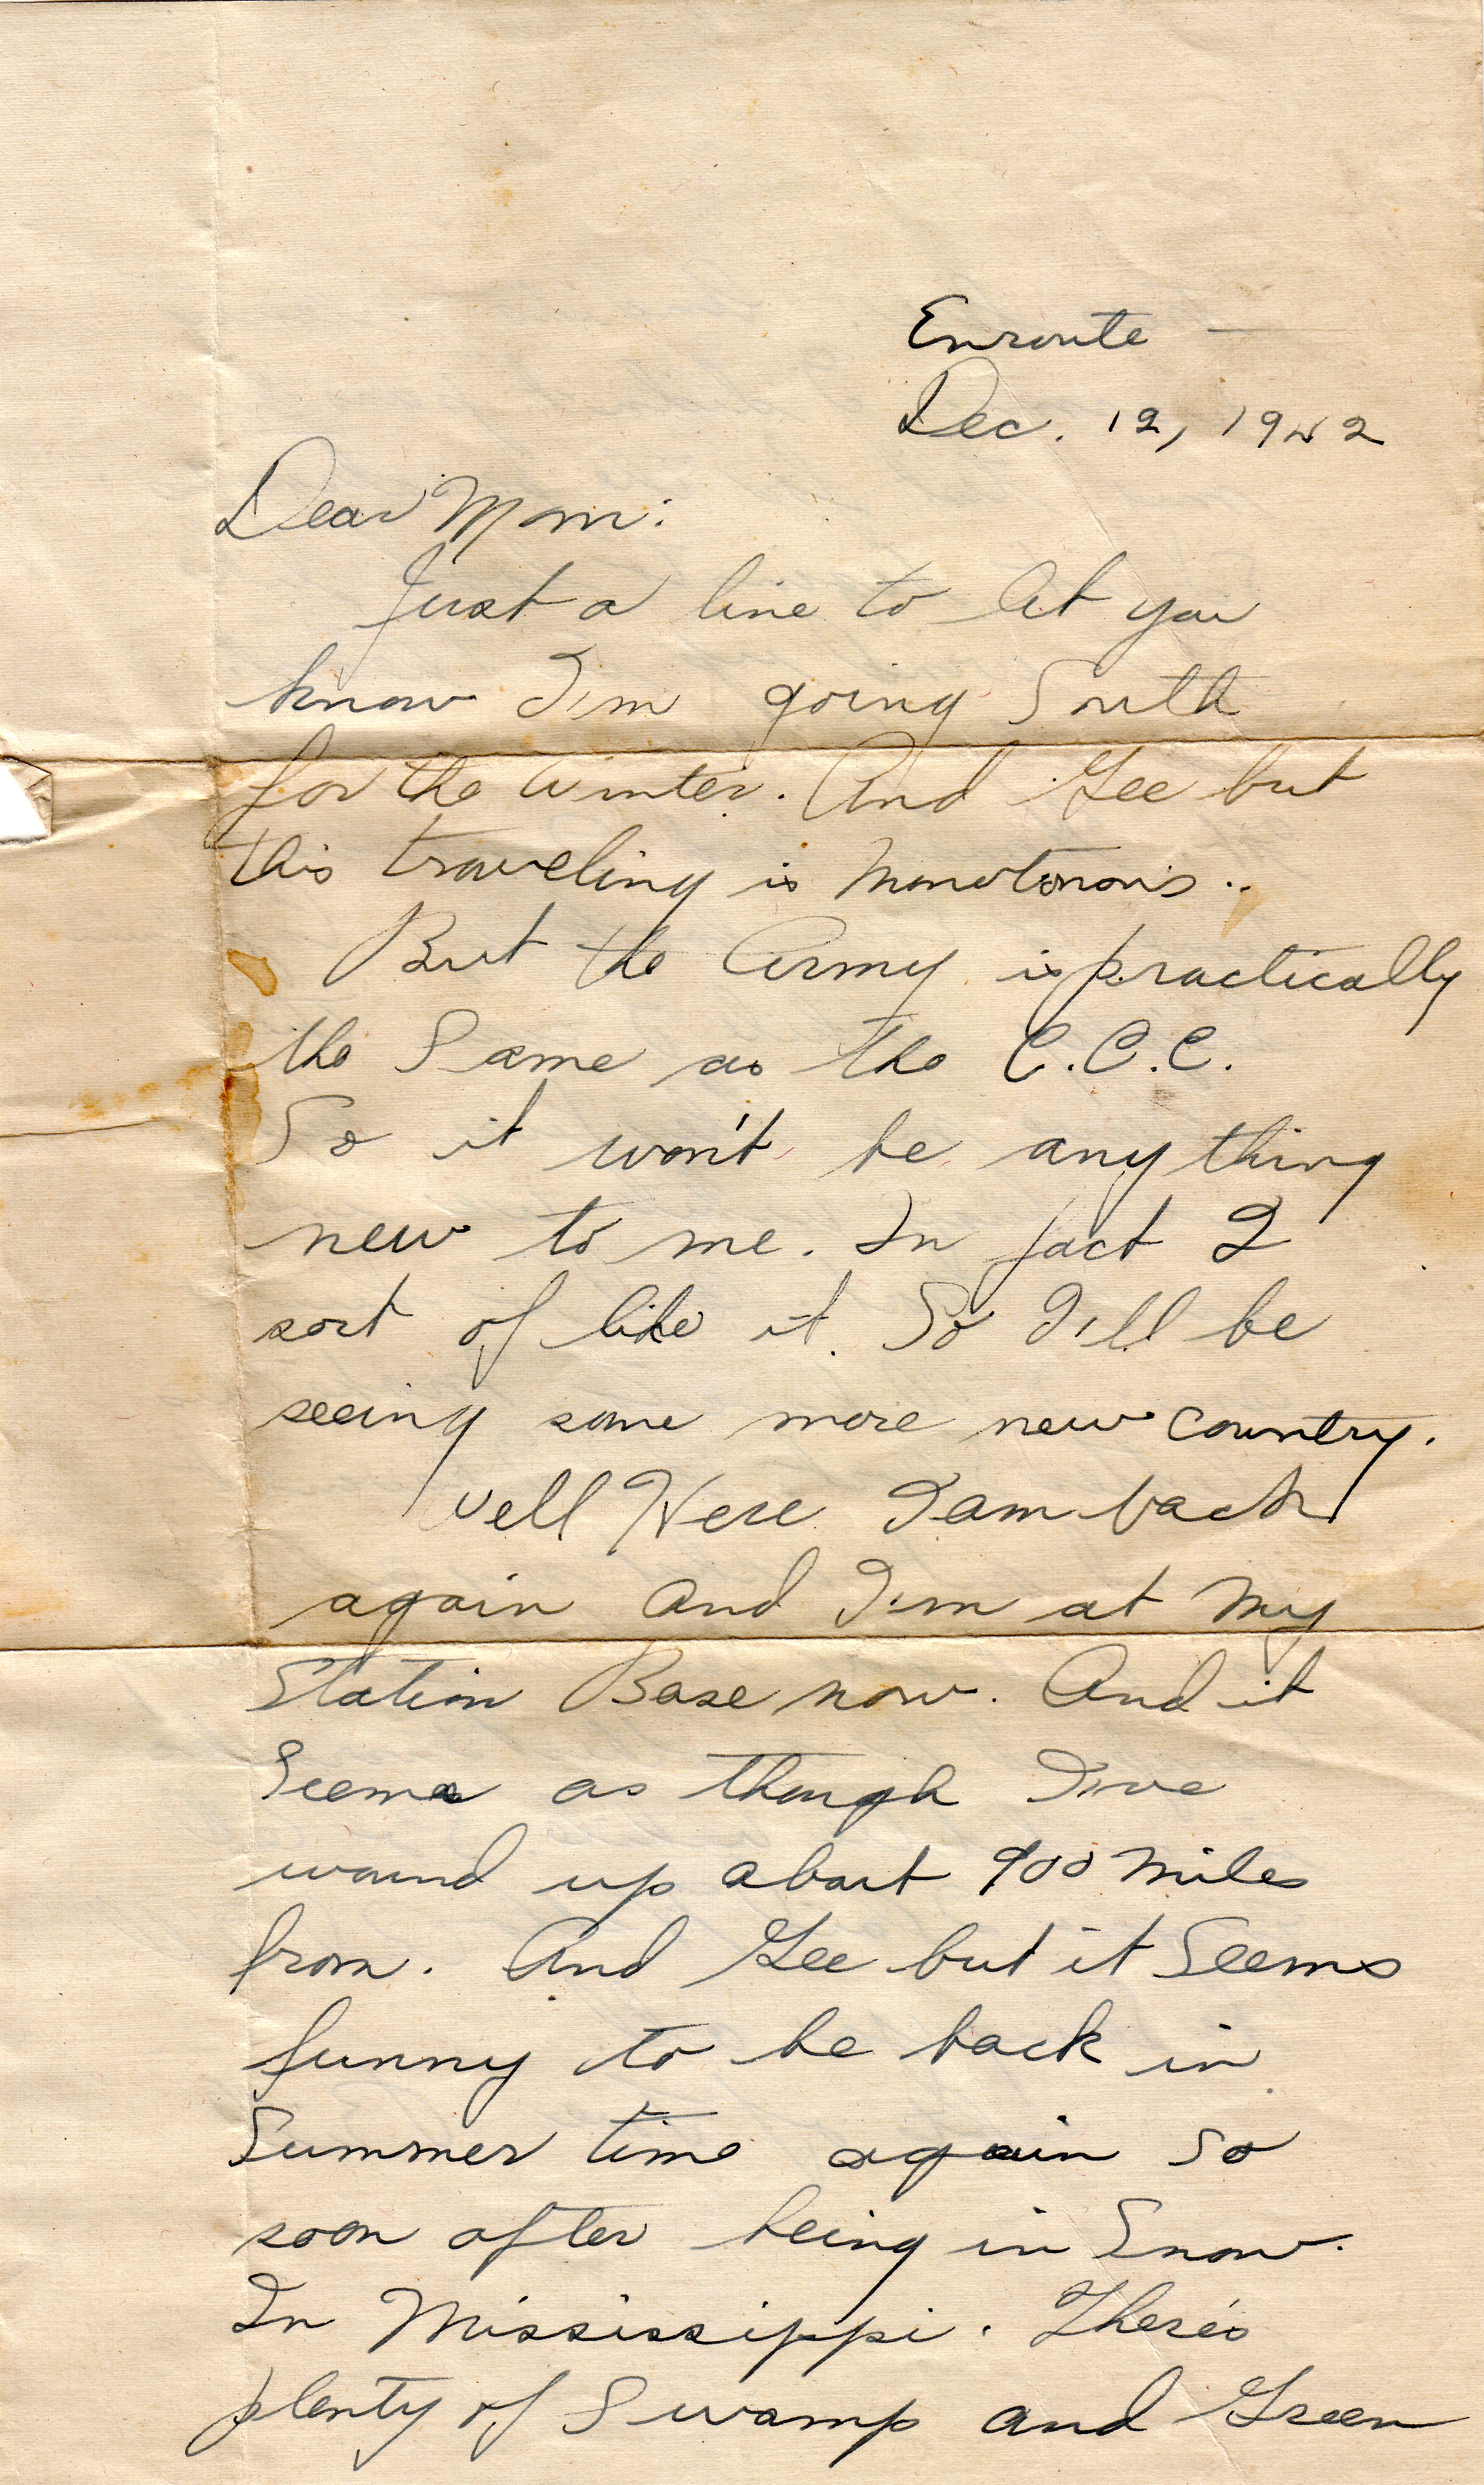 Enroute —
Dec. 12, 1942
Dear Mom:
Just a line to let you
know I'm going South
for the Winter. And Gee but
this traveling is monotonous..
But the Army is practically
the Same as the C.C.C.
So it won't be any thing
new to me. In fact I
sort of like it. So I'll be
seeing some more new country.
Well Here I am back
again and I'm at my
Station Base now. And it
Seems as though I've
wound up about 900 miles
from. And Gee but it Seems
funny to be back in
Summer time again so
soon after being in Snow.
In Mississippi. There's
plenty of Swamp and Green